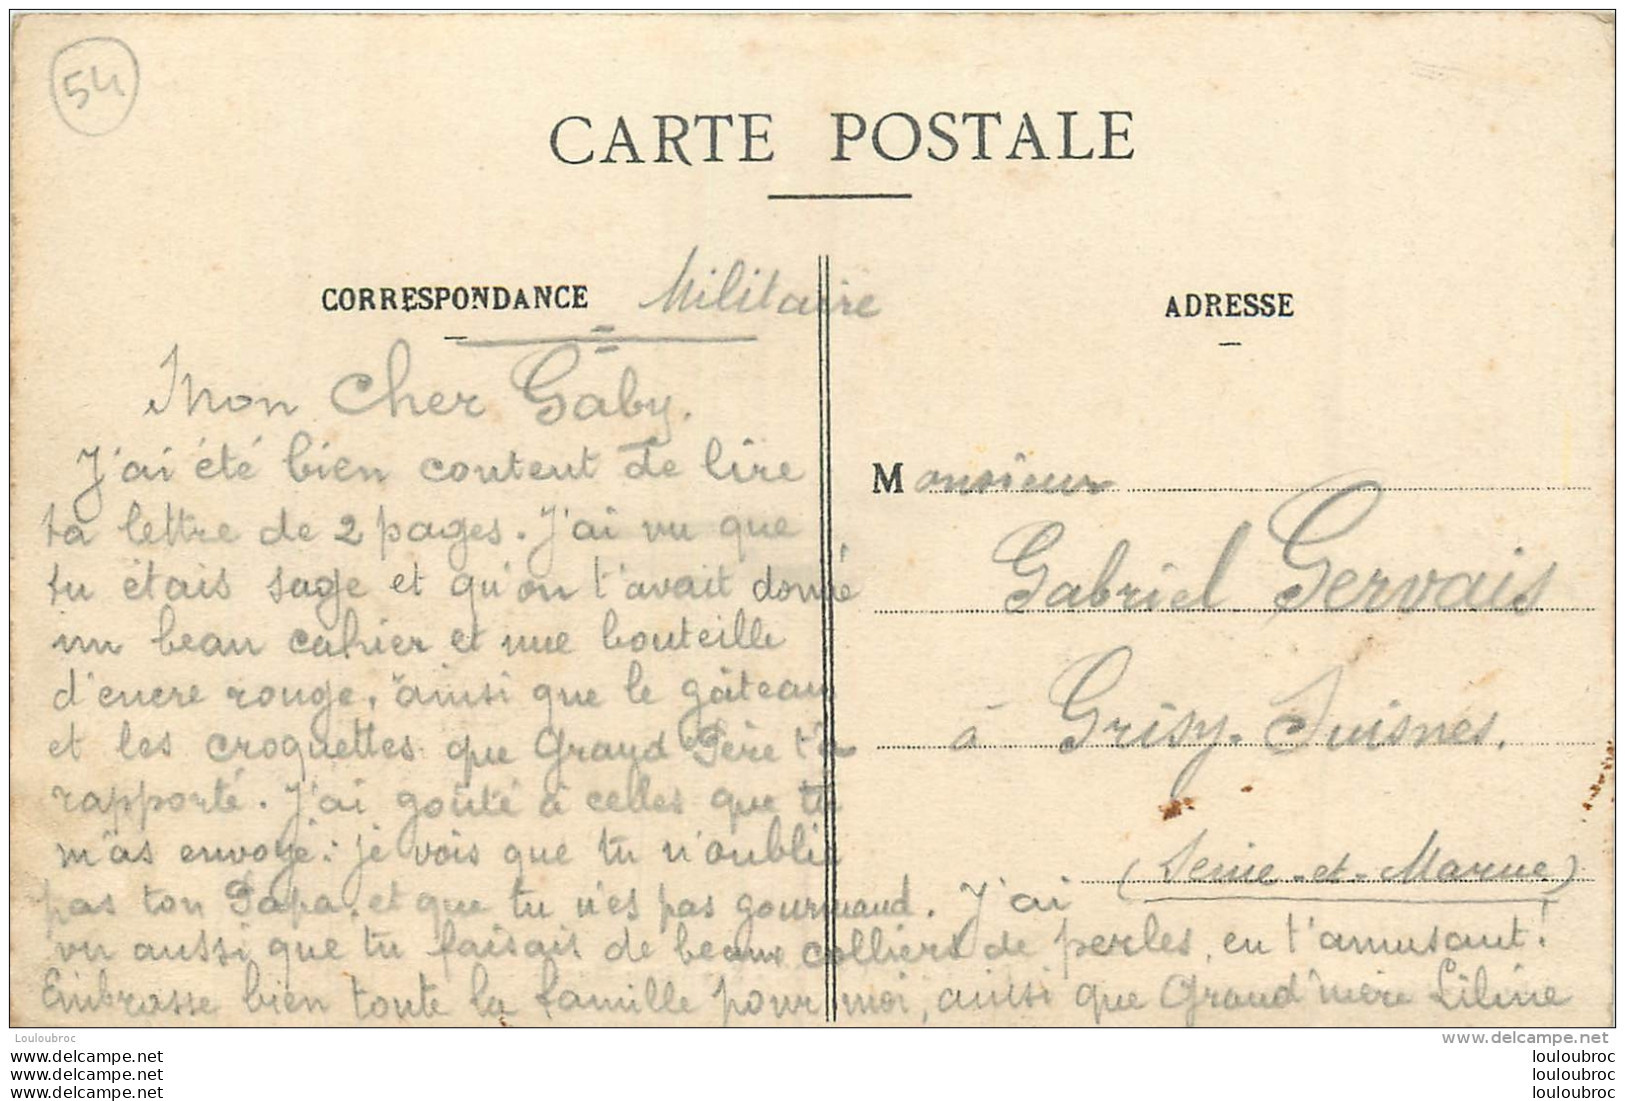 54
CARTE POSTALE
CORRESPONDANCE Militaire
ADRESSE
Mon Cher Gaby.
J'ai été bien content de lire
ta lettre de 2 pages. J'ai vu que
tu étais sage et qu'on t'avait donné
un beau cahier et une bouteille
d'encre rouge, ainsi que le gâteau
et les croquettes que Grand Père t'a
rapporté. J'ai goûté à celles que tu
m'as envoyé: je vois que tu n'oublie
pas ton Papa, et que tu n'es pas gourmand. J'ai
vu aussi que tu faisais de beaux colliers de perles, en t'amusant!
Embrasse bien toute la famille pour moi, ainsi que Grand'mère Liline
Monsieur
Gabriel Gervais
à Grisy-Suisnes.
(Seine-et-Marne)
Louloubroc
www.delcampe.net
www.delcampe.net
www.delcampe.net
www.delcampe.net
louloubroc
louloubroc
louloubroc